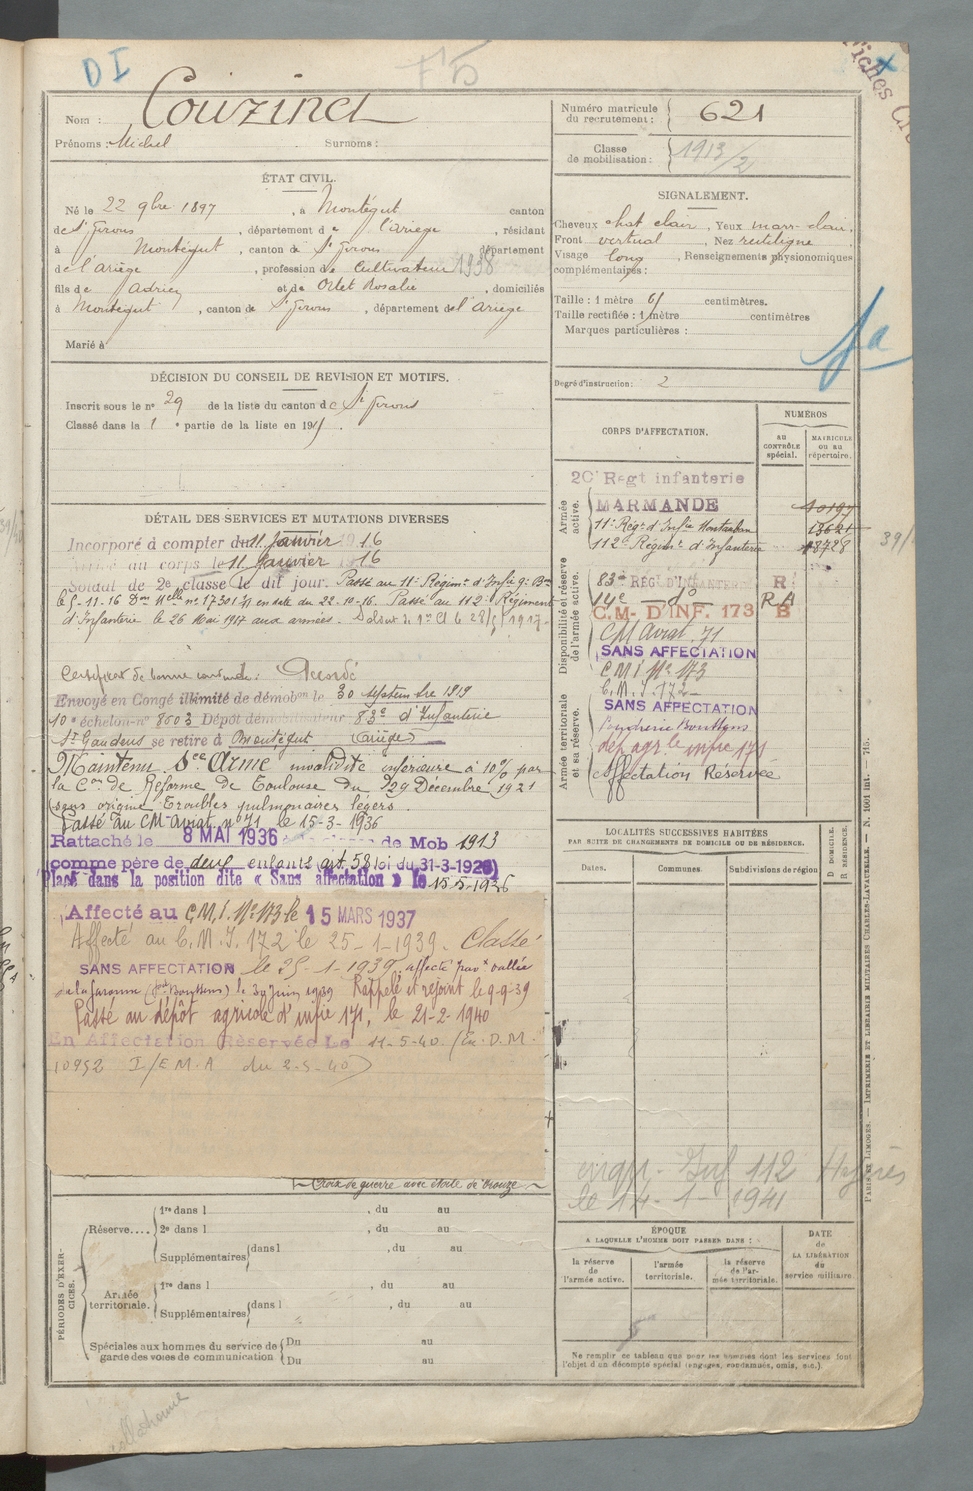 DI
F5
Fiches
Nom : Couzinet
Prénoms : Michel Surnoms :
Numéro matricule du recrutement : 621
Classe de mobilisation : 1913/2
ÉTAT CIVIL.
Né le 22 9bre 1897, à Montégut canton
de St Girons, département de l'Ariège, résidant
à Montégut, canton de St Girons département
de l'Ariège, profession de Cultivateur 1938
fils de Adrien et de Ortet Rosalie, domiciliés
à Montégut, canton de St Girons, département de l'Ariège
Marié à
SIGNALEMENT.
Cheveux chat clair, Yeux marr-clair,
Front vertical, Nez rectiligne,
Visage long, Renseignements physionomiques
complémentaires :
Taille : 1 mètre 61 centimètres.
Taille rectifiée : 1 mètre centimètres
Marques particulières :
Degré d'instruction : 2
fa
DÉCISION DU CONSEIL DE REVISION ET MOTIFS.
Inscrit sous le n° 29 de la liste du canton de St Girons
Classé dans la 1 e partie de la liste en 191
DÉTAIL DES SERVICES ET MUTATIONS DIVERSES
Incorporé à compter du 11 Janvier 1916
Arrivé au corps le 11 Janvier 16
Soldat de 2e classe le dit jour. Passé au 11e Régimt d'Infie
le 5-11-16 Don Mlle n° 17301 en date du 22-10-16. Passé au 112e Régiment
d'Infanterie le 26 Mai 1917 aux armées.
Certificat de bonne conduite : Accordé
Envoyé en Congé illimité de démobon le 30 septembre 1919
10e échelon n° 8003 Dépôt démobilisateur 83e d'Infanterie
St Gaudens se retire à Montégut (Ariège)
Maintenu Sce Armé invalidité inférieure à 10% par
la Con de Réforme de Toulouse du 29 Décembre 1921
sans origine Troubles pulmonaires légers.
Passé au CM Aviat. n° 71 le 15-3-1936
Rattaché le 8 MAI 1936 de Mob 1913
(comme père de deux enfants (art. 58 loi du 31-3-1928)
Placé dans la position dite « Sans affectation » le 15 5-1936
Affecté au C.M.I. N° 173 le 15 MARS 1937
Affecté au C.M.I. 172 le 25-1-1939. Classé
SANS AFFECTATION le 25-1-1939, affecté vallée
de la Garonne le 30 juin 1939 Rappelé et rejoint le 9-9-39
Passé au dépôt agricole d'infie 171, le 21-2-1940
En Affectation Réservée Le 11-5-40. (En. D.M.
10952 I/E.M.A du 2-5-40)
Croix de guerre avec étoile de bronze
CORPS D'AFFECTATION.
NUMÉROS
AU CONTRÔLE spécial.
MATRICULE ou au répertoire.
Armée active.
20e Regt infanterie
MARMANDE 10197
11e Régt d'Infie Montauban
112e Régimt d'Infanterie 13728
39/
Disponibilité et réserve de l'armée active.
83e RÉG. D'INFANTERIE R
14e do R A
C.M. D'INF. 173 B
CM Aviat. 71
SANS AFFECTATION
C M I N° 173
C. M. I. 172
Armée territoriale et sa réserve.
SANS AFFECTATION
Poudrerie
dép. agr. le infie 171
Affectation Réservée
LOCALITÉS SUCCESSIVES HABITÉES
PAR SUITE DE CHANGEMENTS DE DOMICILE OU DE RÉSIDENCE.
Dates. Communes. Subdivisions de région
D DOMICILE.
R RÉSIDENCE.
engagé Inf 112 Hyères
le 14-1-1941
PÉRIODES D'EXERCICES.
Réserve.... 1re dans l , du au
2e dans l , du au
Supplémentaires dans l , du au
Armée territoriale. 1re dans l , du au
Supplémentaires dans l , du au
Spéciales aux hommes du service de garde des voies de communication Du au
Du au
ÉPOQUE
A LAQUELLE L'HOMME DOIT PASSER DANS :
la réserve de l'armée active.
l'armée territoriale.
la réserve de l'armée territoriale.
DATE de LA LIBÉRATION du service militaire.
Ne remplir ce tableau que pour les hommes dont les services font
l'objet d'un décompte spécial (engagés, condamnés, omis, etc.).
PARIS ET LIMOGES. — IMPRIMERIE ET LIBRAIRIE MILITAIRES CHARLES-LAVAUZELLE. — N. 1001 int. — 715.